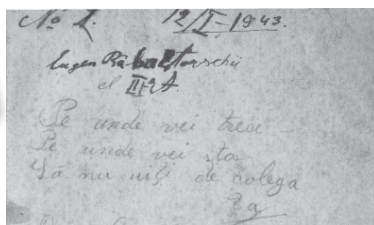 No 2. 12/I-1943.
Eugen
cl III-a A.
Pe unde vei trece
Pe unde vei sta
Să nu uiți de colega
Ta